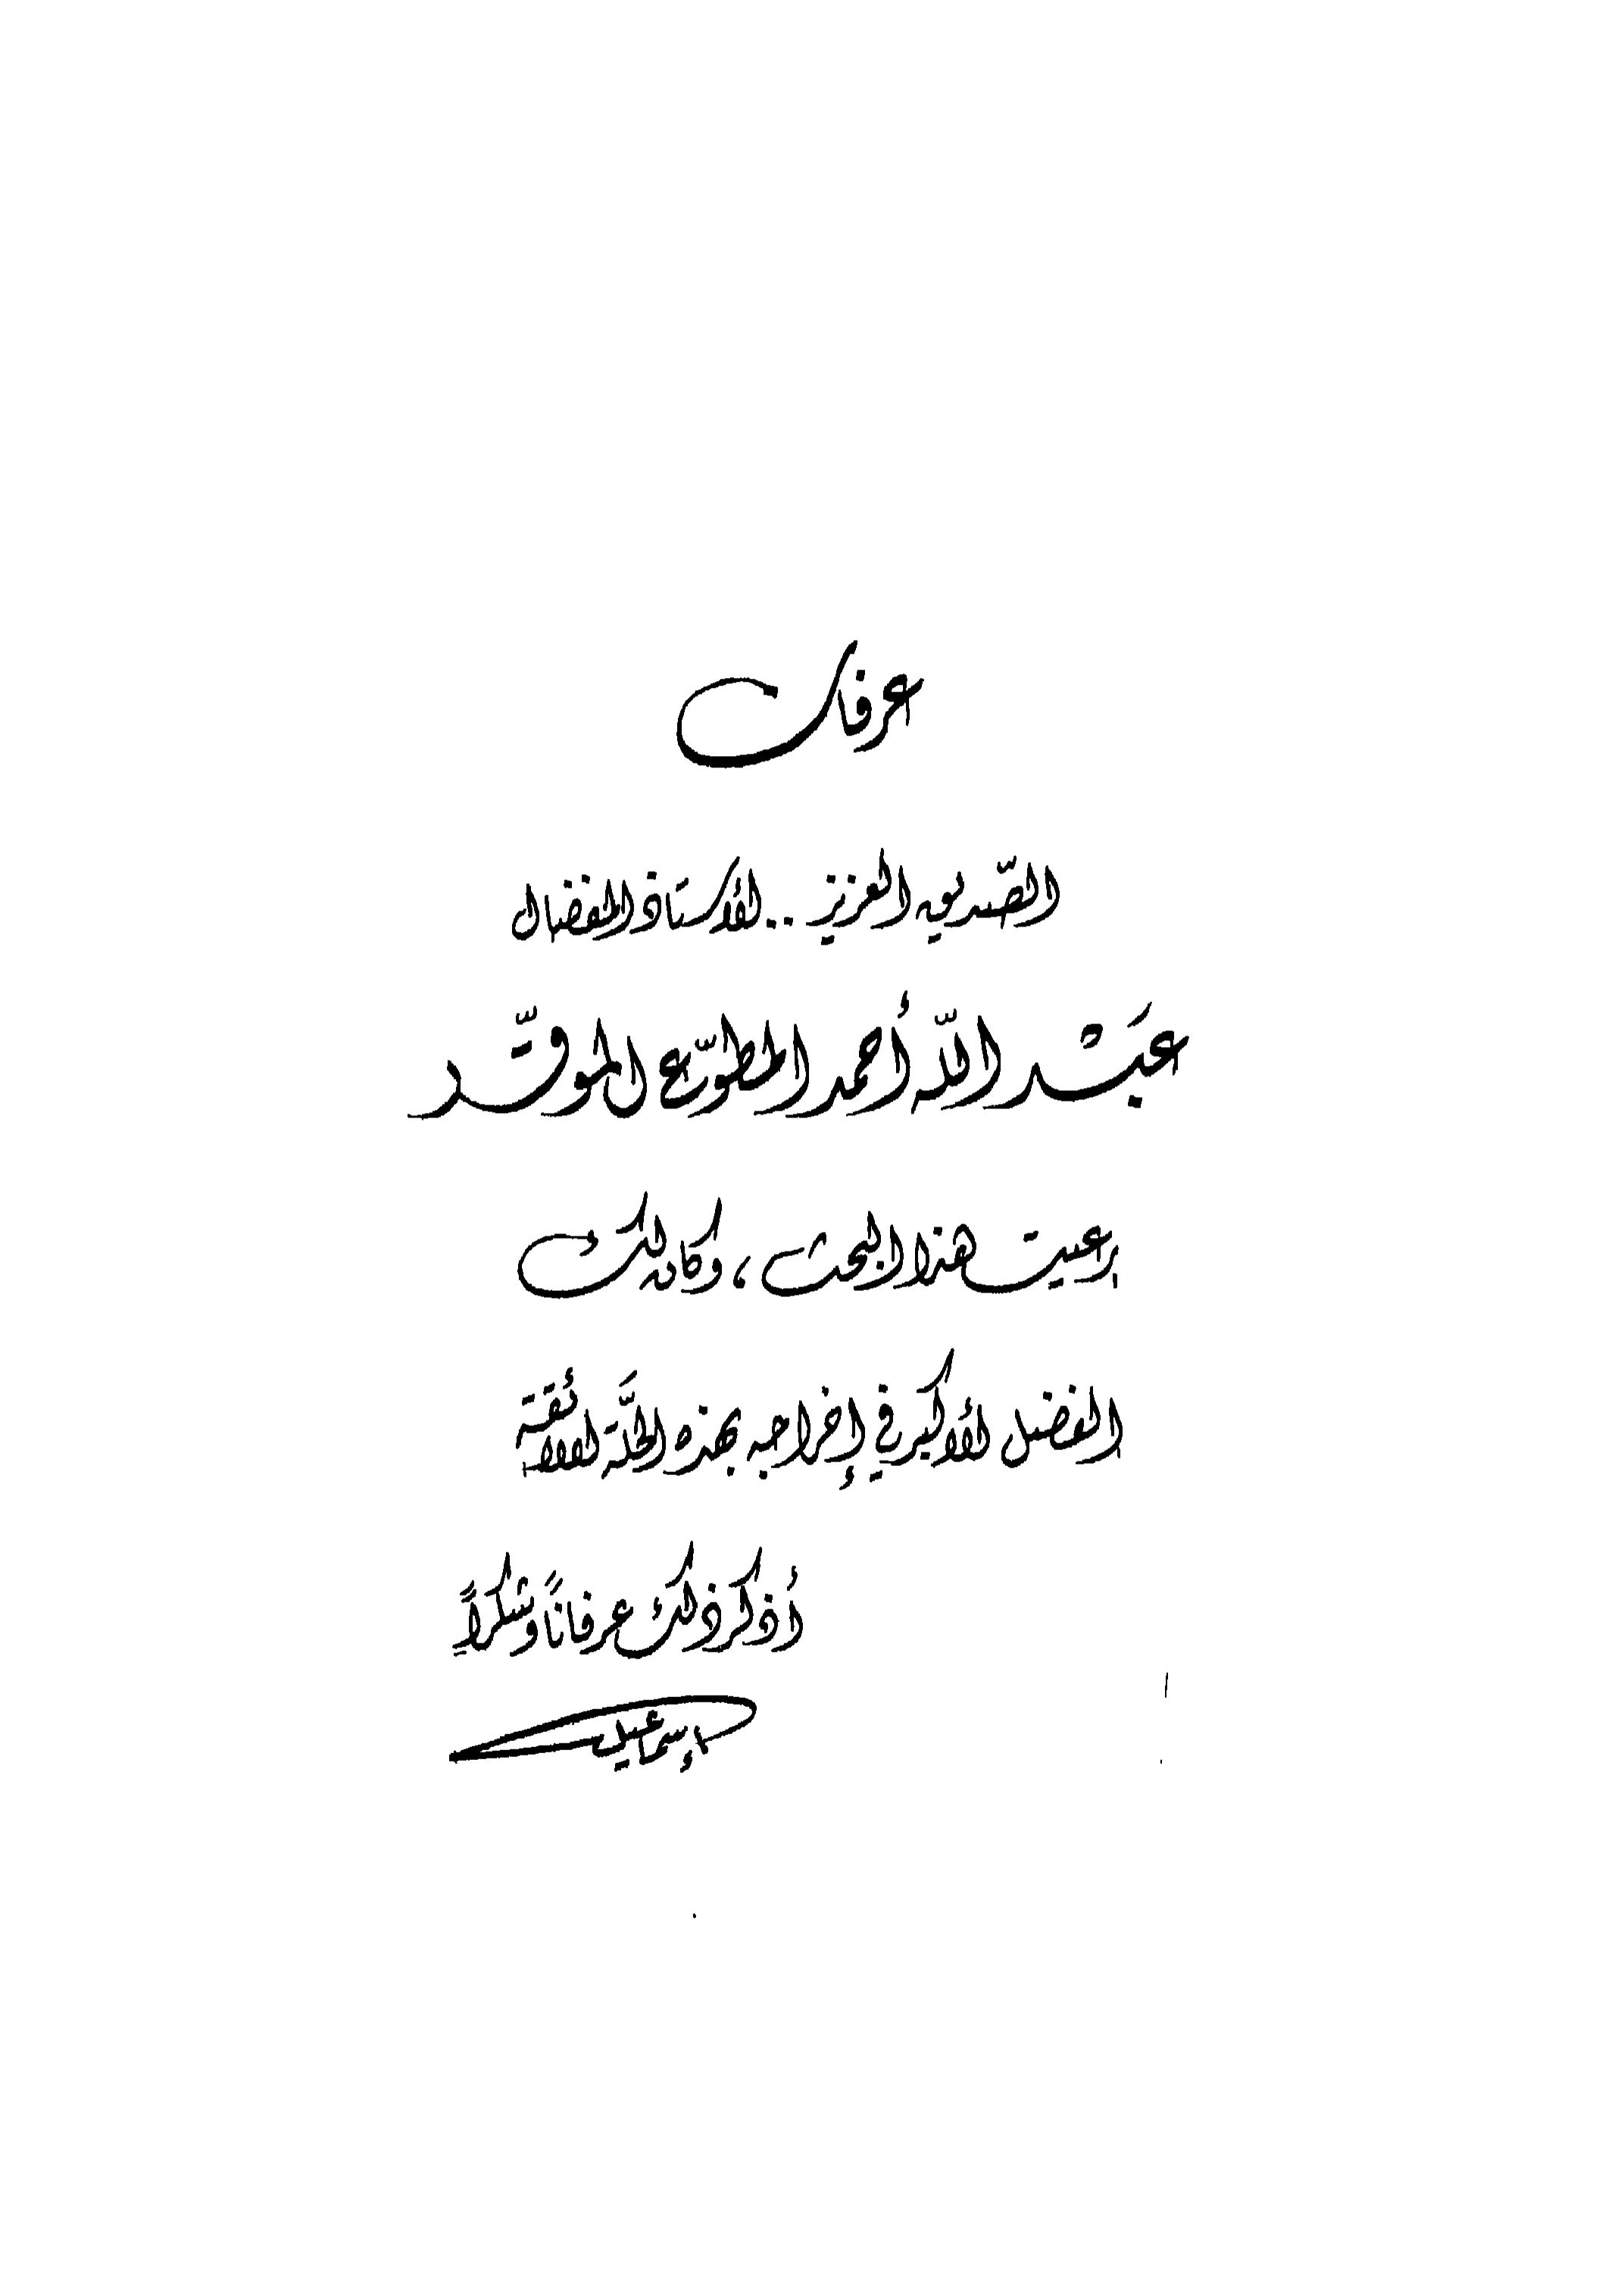 عرفان
الصّديق العزيز .. الأستاذ المفضال
عبد اللّه أحمد المطوّع الموقّر
رعيت هذا البحث ، وكان لك
الفضل الأكبر في إخراجه بهذه الحلَّة اللائقة
أذكر ذلك عرفاناً وشكراً
إسماعيل